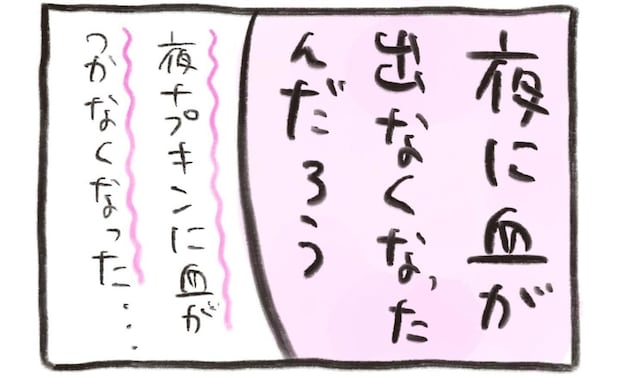 夜に血が
出なくなった
んだろう
夜ナプキンに血が
つかなくなった...